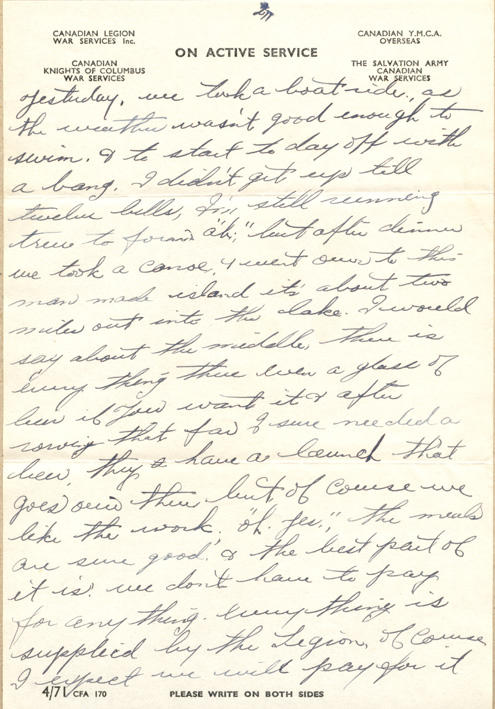 CANADIAN LEGION
WAR SERVICES Inc.
CANADIAN
KNIGHTS OF COLUMBUS
WAR SERVICES
ON ACTIVE SERVICE
CANADIAN Y.M.C.A.
OVERSEAS
THE SALVATION ARMY
CANADIAN
WAR SERVICES
yesterday, we took a boat ride, as
the weather wasn't good enough to
swim. & to start to day off with
a bang. I didn't get up till
twelve bells, I'm still running
true to form "ah," but after dinner
we took a canoe, & went over to this
man made island it's about two
miles out into the lake. I would
say about the middle, there is
every thing there even a glass of
beer if you want it & after
rowing that far I sure needed a
beer, they have a launch that
goes over there but of course we
like the work, "oh. yes," the meals
are sure good. & the best part of
it is. we don't have to pay
for any thing. every thing is
supplied by the Legion, of course
I expect we will pay for it
4/71 CFA 170
PLEASE WRITE ON BOTH SIDES